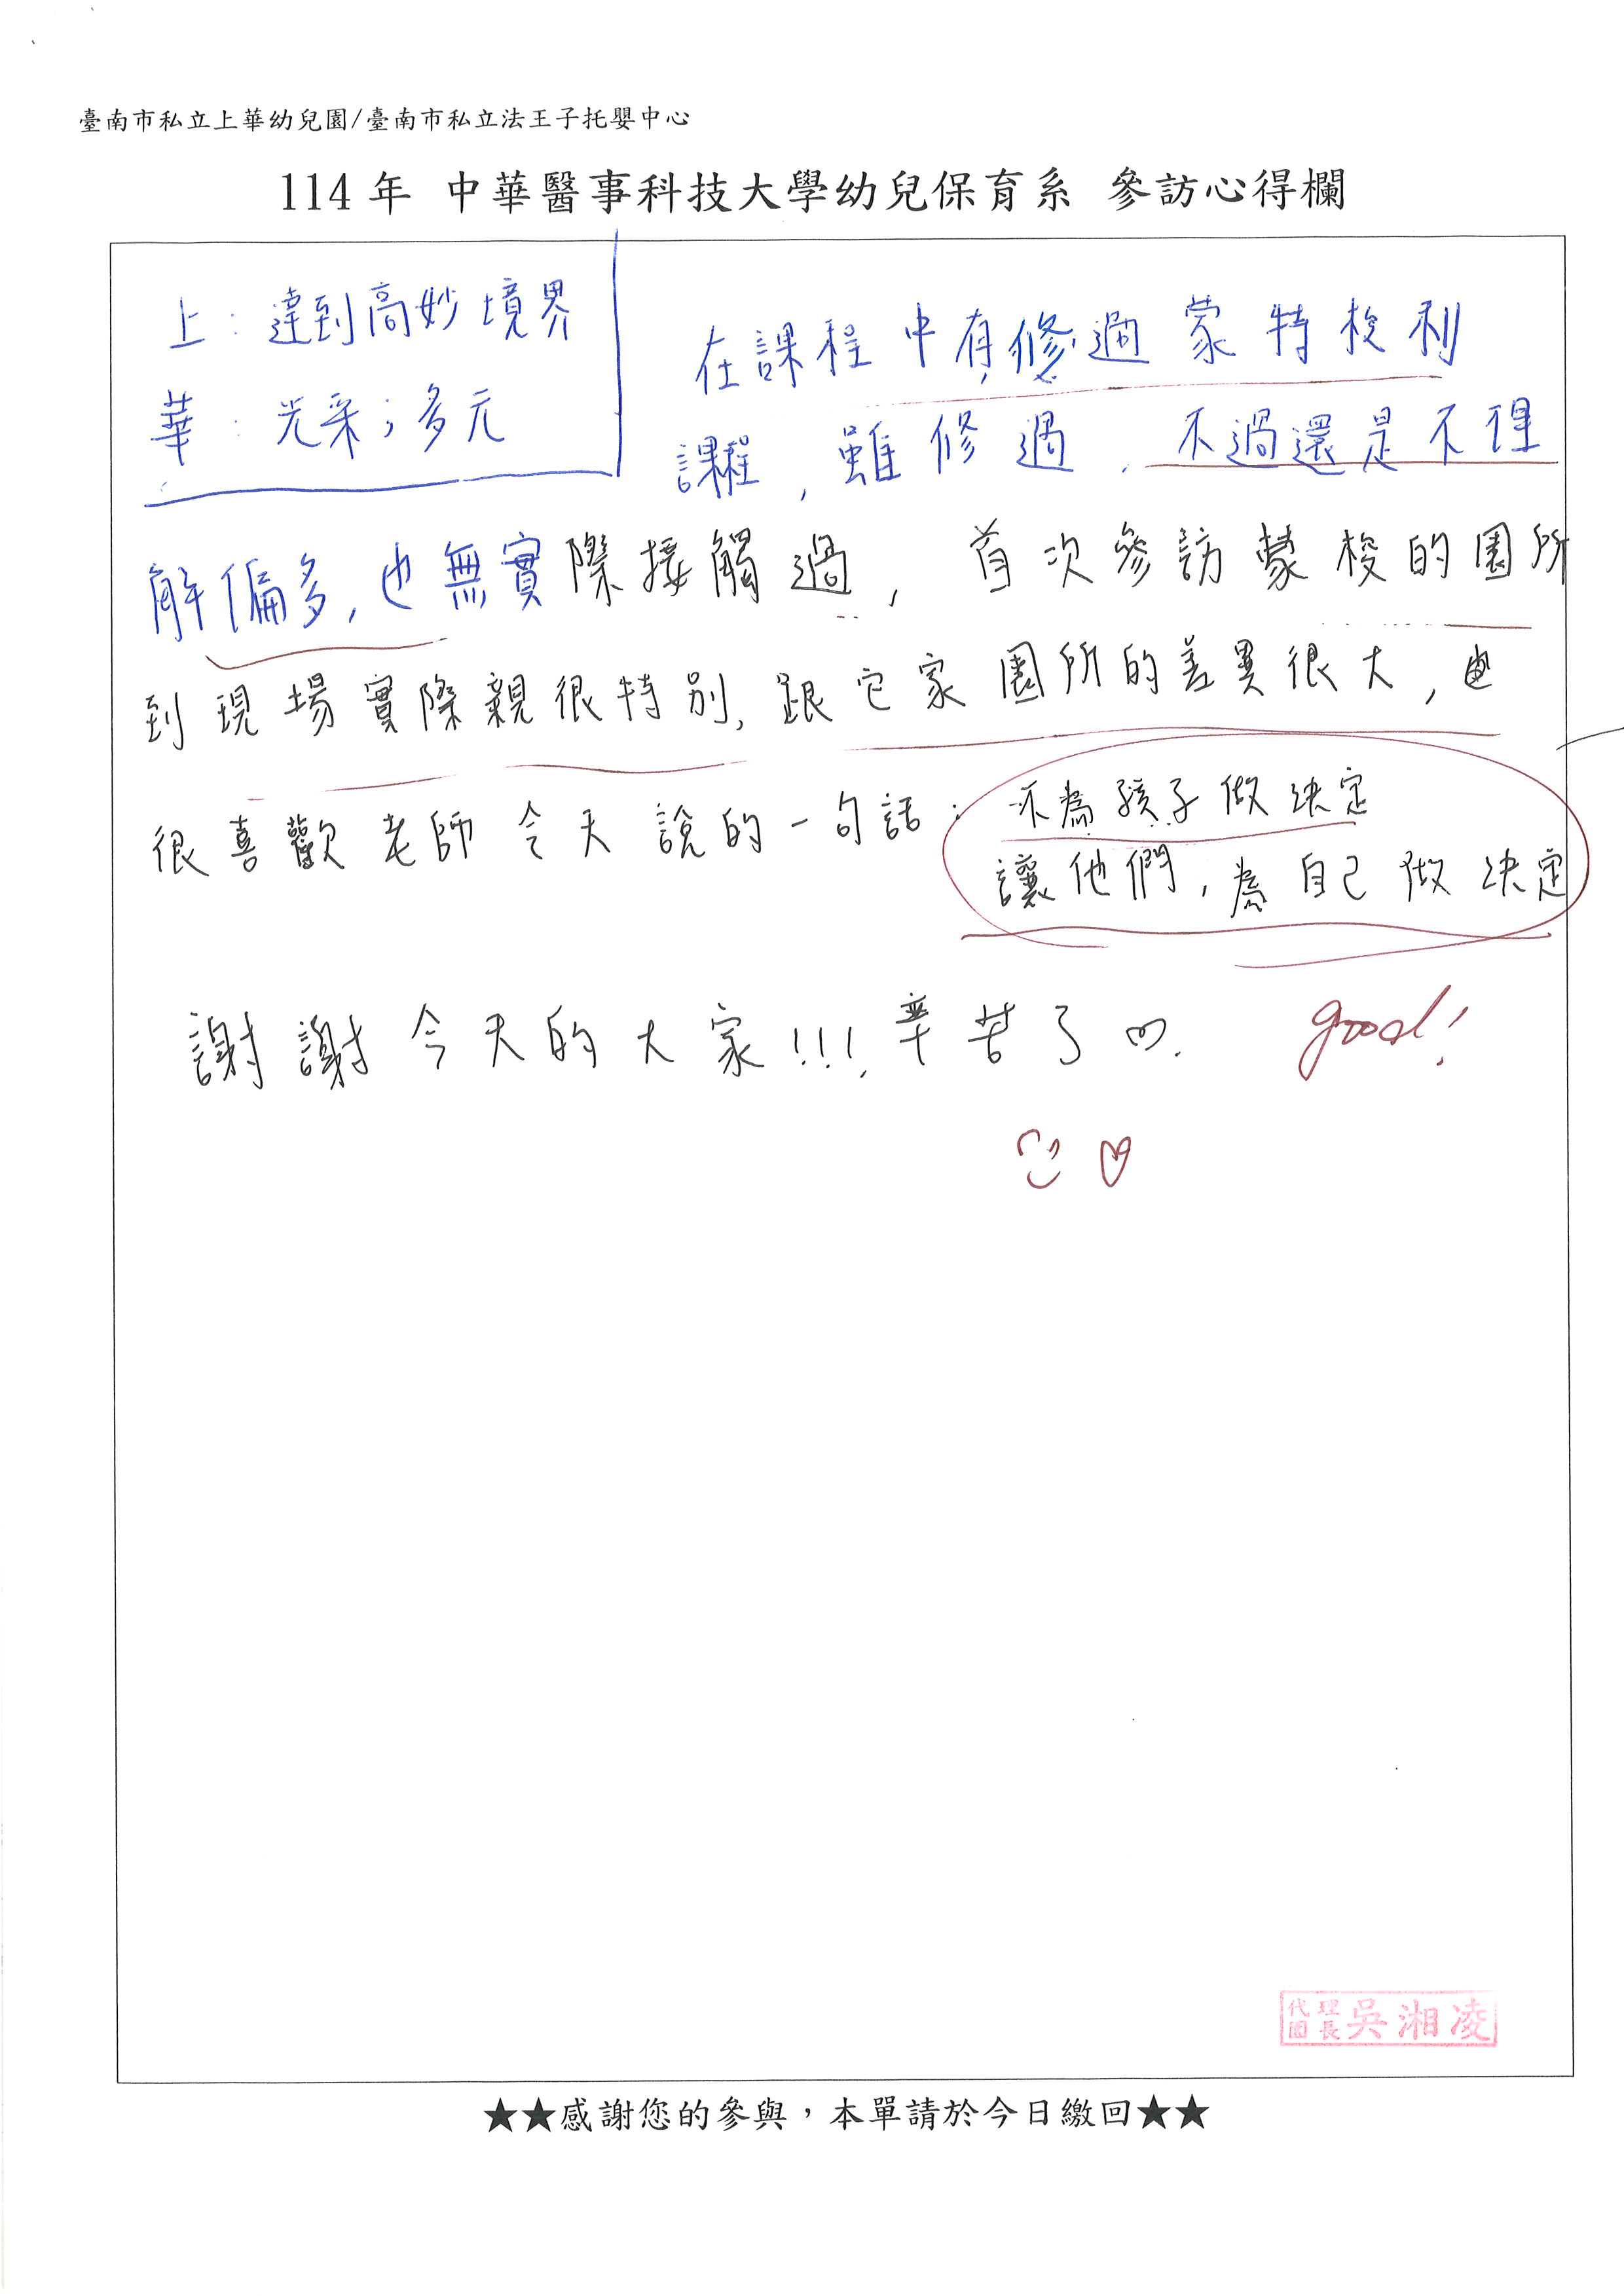 臺南市私立上華幼兒園/臺南市私立法王子托嬰中心
114年 中華醫事科技大學幼兒保育系 參訪心得欄
上：達到高妙境界
華：光采；多元
在課程中有修過蒙特梭利
課程，雖修過，不過還是不理
解偏多，也無實際接觸過，首次參訪蒙梭的園所
到現場實際親很特別，跟它家園所的差異很大，也
很喜歡老師今天說的一句話：不為孩子做決定
讓他們，為自己做決定
謝謝今天的大家!!!辛苦了♡.
good!
代理園長 吳湘凌
★★感謝您的參與，本單請於今日繳回★★